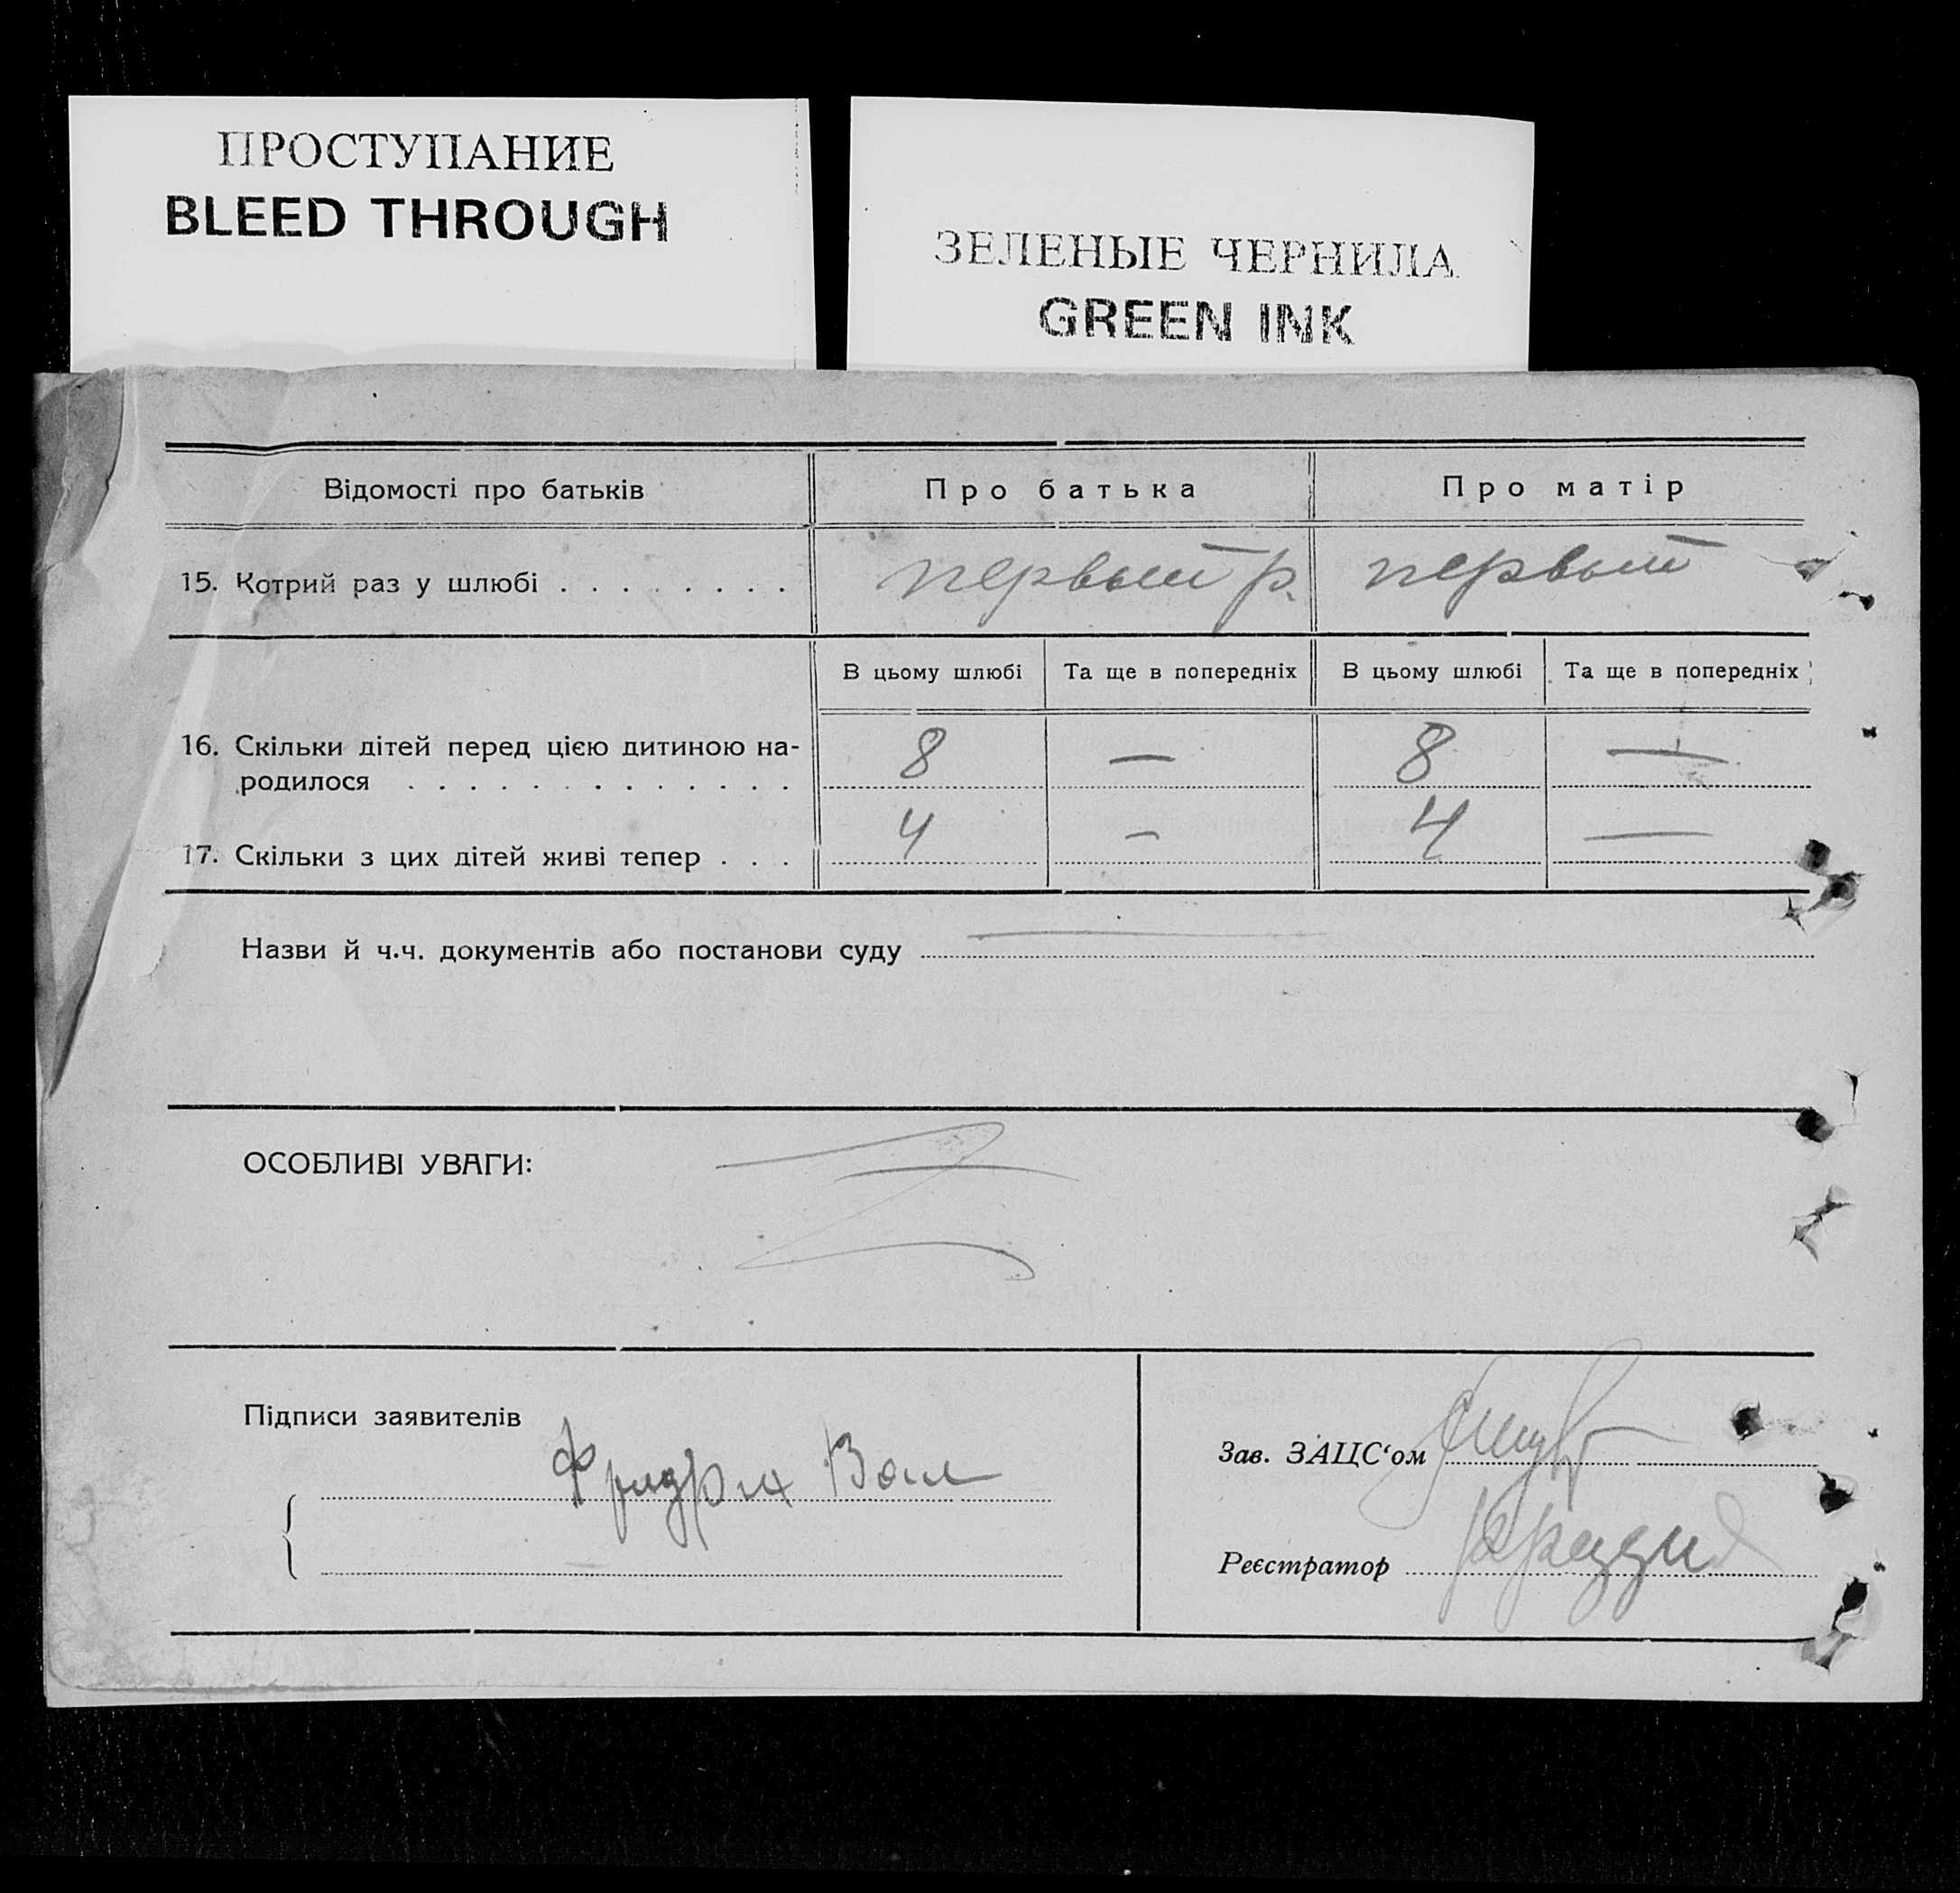 ПРОСТУПАНИЕ
BLEED THROUGH
ЗЕЛЕНЫЕ ЧЕРНИЛА
GREEN INK
Відомості про батьків Про батька Про матір
15. Котрий раз у шлюбі . . . . . . . . первый р. первый
В цьому шлюбі Та ще в попередніх В цьому шлюбі Та ще в попередніх
16. Скільки дітей перед цією дитиною на-
родилося . . . . . . . . . . . . . 8 — 8 —
17. Скільки з цих дітей живі тепер . . . 4 — 4 —
Назви й ч.ч. документів або постанови суду —
ОСОБЛИВІ УВАГИ:
Підписи заявителів
Фридрих
Зав. ЗАЦС‘ом
Реєстратор